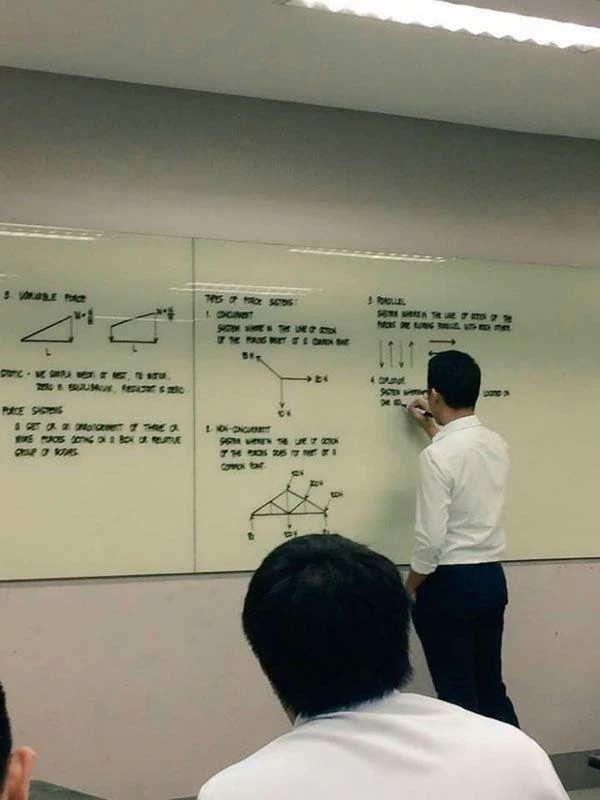 3. VARIABLE FORCE
L
L
STATIC - WE SIMPLY MEAN AT REST, NO MOTION.
ZERO IN EQUILIBRIUM, RESULTANT IS ZERO.
FORCE SYSTEMS
A SET OR AN ARRANGEMENT OF THREE OR
MORE FORCES ACTING ON A BODY OR RELATIVE
GROUP OF BODIES.
TYPES OF FORCE SYSTEMS:
1. CONCURRENT
SYSTEM WHERE IN THE LINE OF ACTION
OF THE FORCES MEET AT A COMMON POINT
15 N
20 N
10 N
2. NON-CONCURRENT
SYSTEM WHEREIN THE LINE OF ACTION
OF THE FORCES DOES NOT MEET AT A
COMMON POINT.
100N
200N
100N
100N
3. PARALLEL
SYSTEM WHEREIN THE LINE OF ACTION OF THE
FORCES ARE RUNNING PARALLEL WITH EACH OTHER.
4. COPLANAR
SYSTEM WHEREIN LOCATED ON
ONE